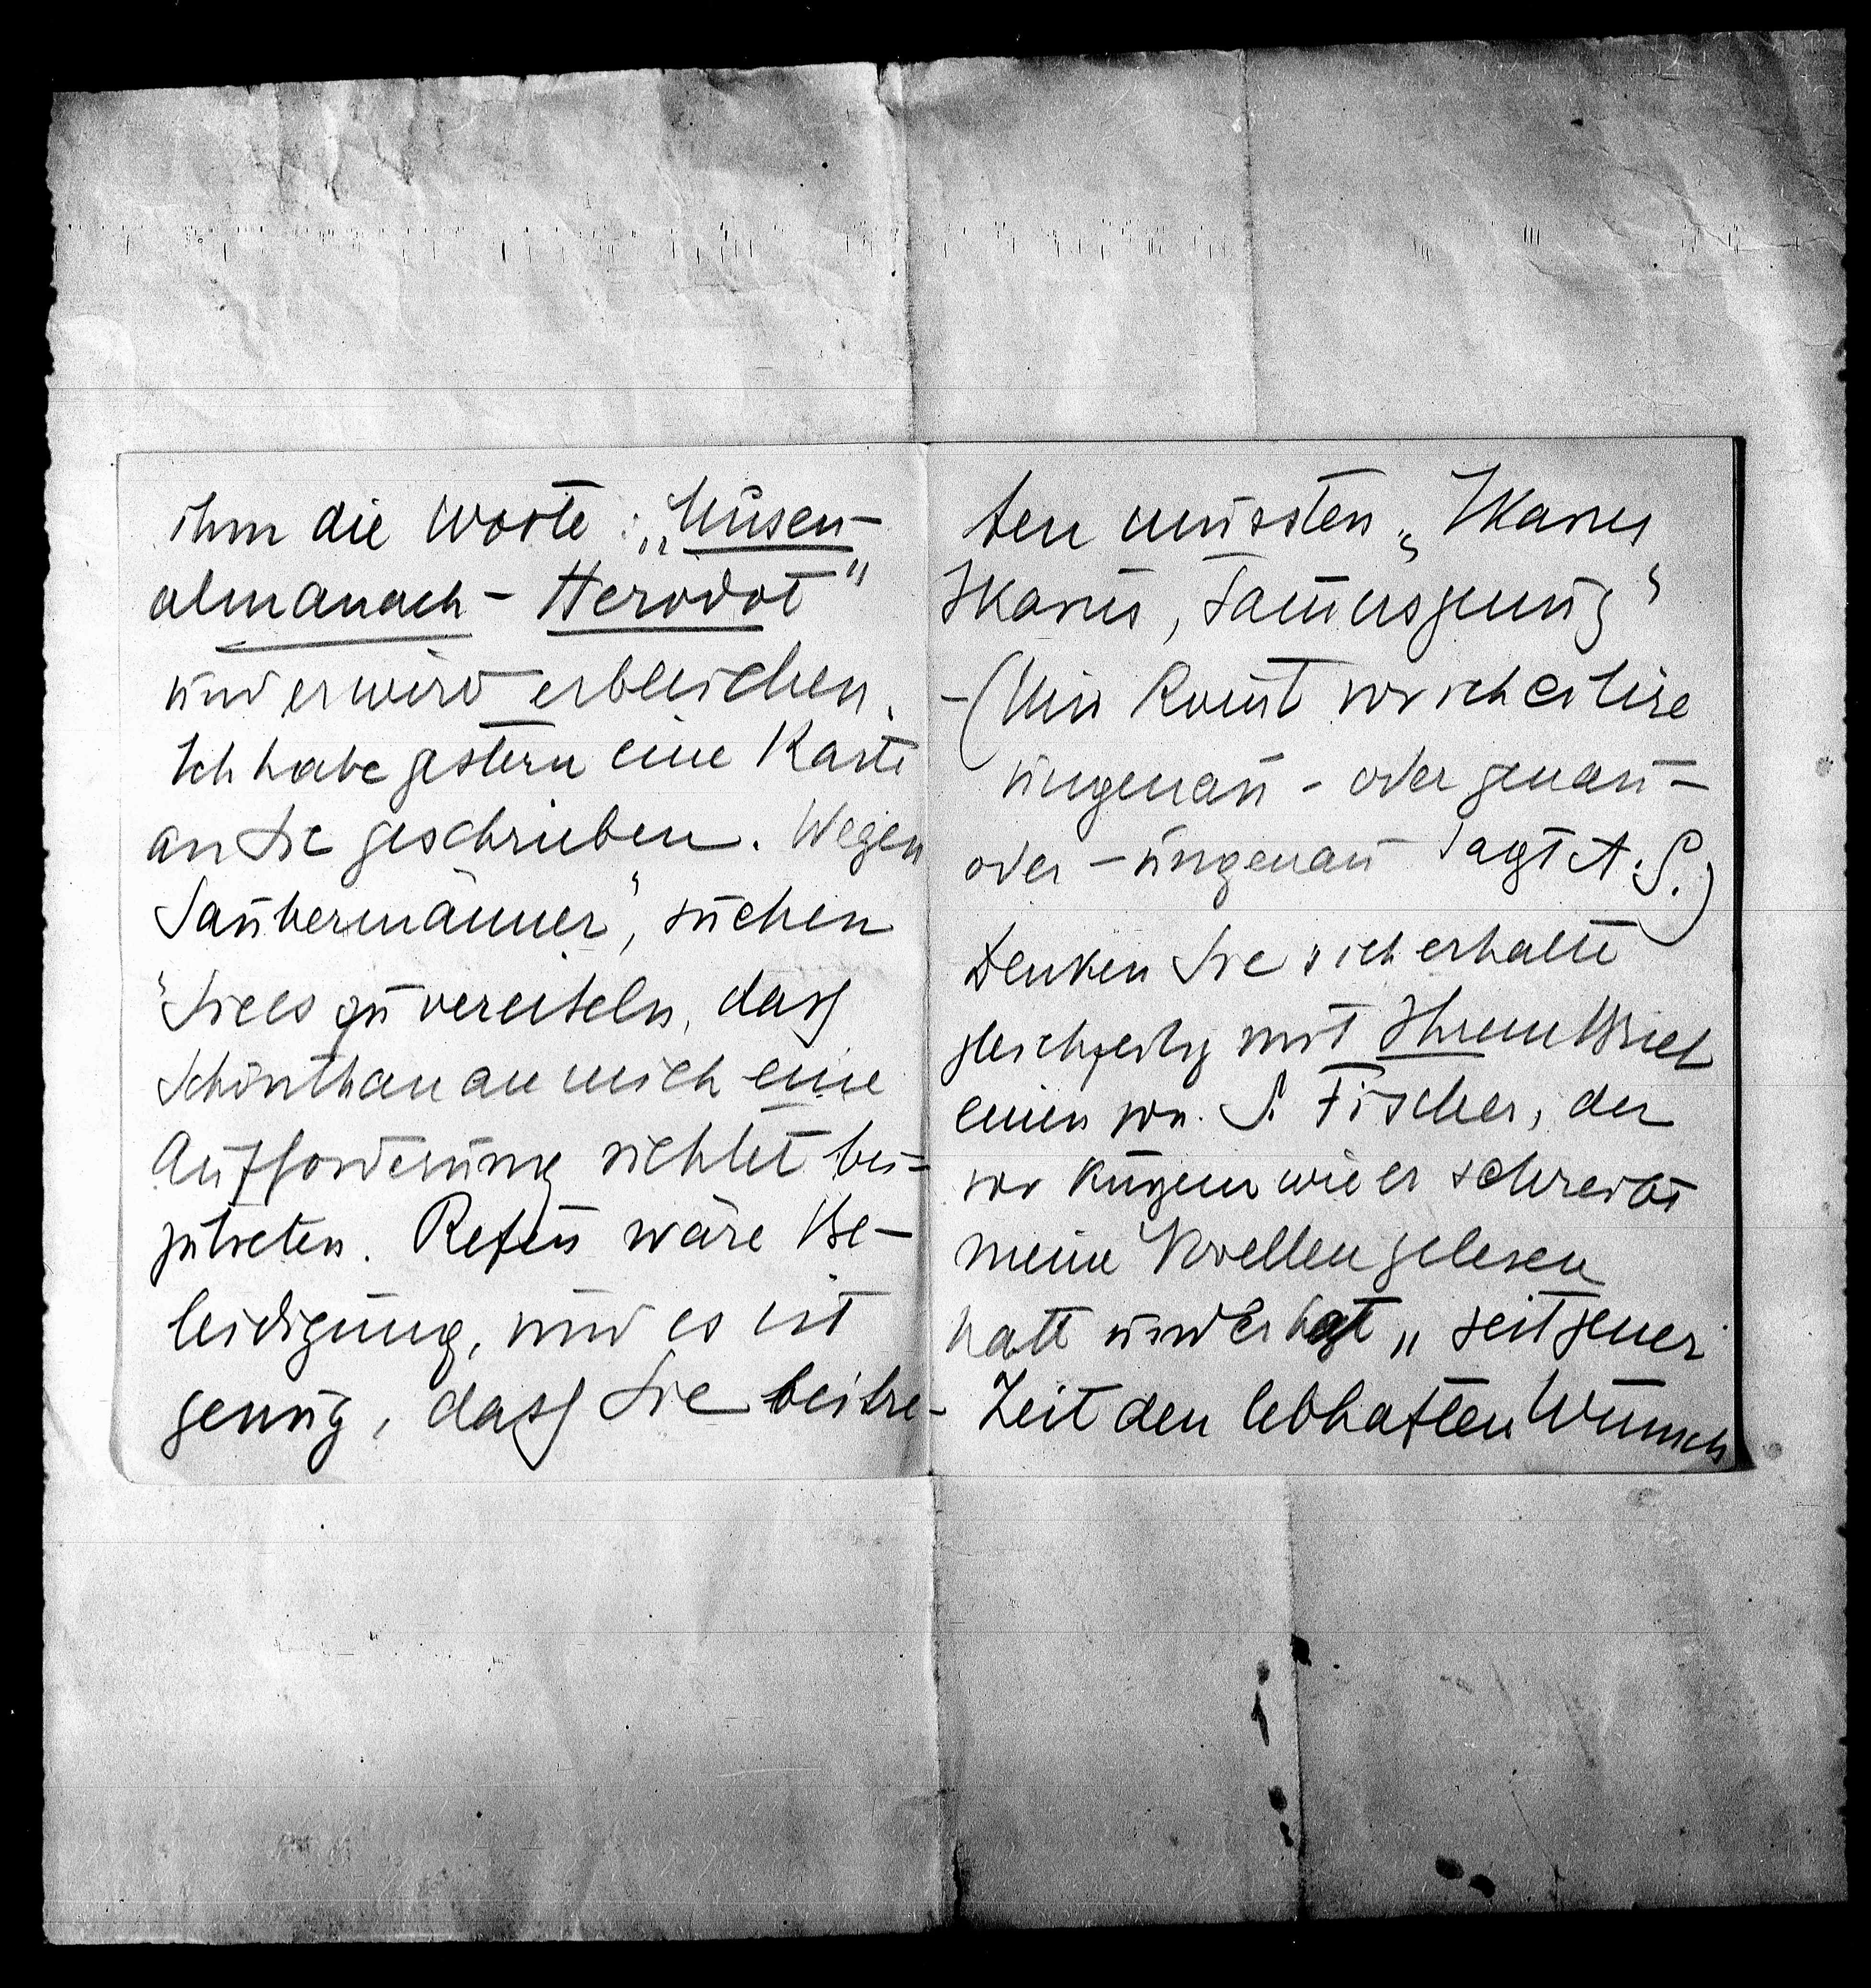 ihm die Worte: „Musen-
almanach - Herodot"
und er wird erbleichen.
Ich habe gestern eine Karte
an Sie geschrieben. Wegen
„Saubermänner", suchen
Sie es zu vereiteln, dass
Schönthan an mich eine
Aufforderung richtet bei-
zutreten. Refus wäre Be-
leidigung, und es ist
genug, dass Sie beitre-
ten mussten „Ikarus
Ikarus, Jammers genug"
-(Mir komt vor ich citire
ungenau - oder genau -
oder - ungenau sagt A. S.)
Denken Sie sich erhalte
gleichzeitig mit Ihrem Brief
einen von S. Fischer, der
vor kurzem wie er schreibt
meine Novellen gelesen
hatt und er hat „seit jener
Zeit den lebhaften Wunsch